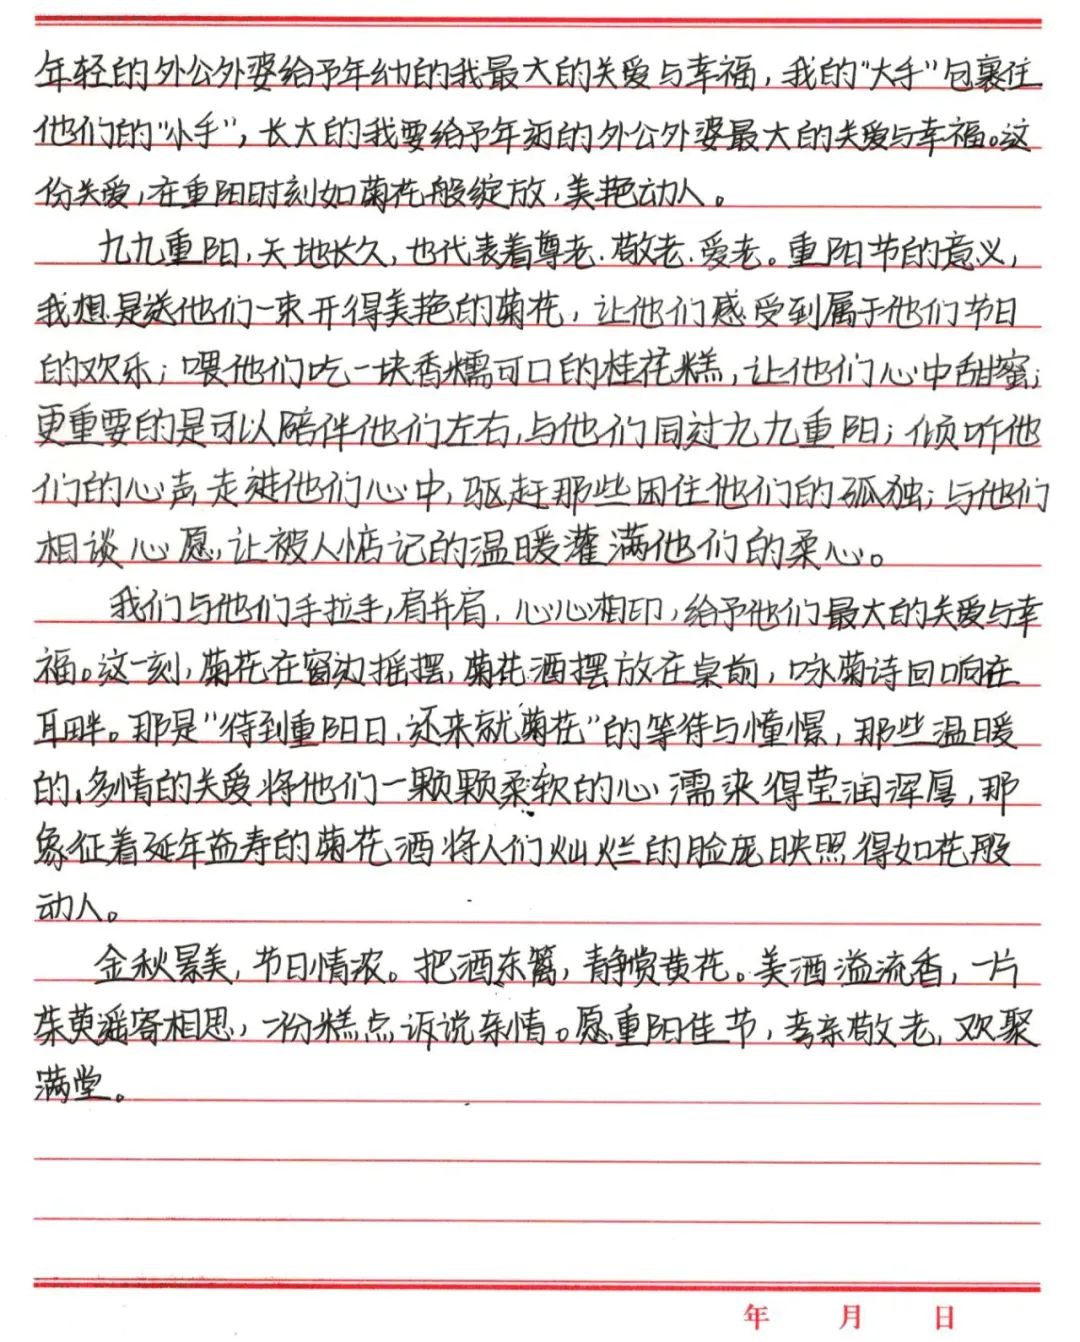 年轻的外公外婆给予年幼的我最大的关爱与幸福，我的“大手”包裹住
他们的“小手”，长大的我要给予年迈的外公外婆最大的关爱与幸福。这
份关爱，在重阳时刻如菊花般绽放，美艳动人。
九九重阳，天地长久，也代表着尊老、敬老、爱老。重阳节的意义，
我想是送他们一束开得美艳的菊花，让他们感受到属于他们节日
的欢乐；喂他们吃一块香糯可口的桂花糕，让他们心中甜蜜；
更重要的是可以陪伴他们左右，与他们同过九九重阳；倾听他
们的心声，走进他们心中，驱赶那些困住他们的孤独；与他们
相谈心愿，让被人惦记的温暖灌满他们的柔心。
我们与他们手拉手，肩并肩，心心相印，给予他们最大的关爱与幸
福。这一刻，菊花在窗边摇摆，菊花酒摆放在桌前，咏菊诗回响在
耳畔。那是“待到重阳日，还来就菊花”的等待与憧憬，那些温暖
的、多情的关爱将他们一颗颗柔软的心濡染得莹润浑厚，那
象征着延年益寿的菊花酒将人们灿烂的脸庞映照得如花般
动人。
金秋景美，节日情浓。把酒东篱，静赏黄花。美酒溢流香，一片
茱萸遥寄相思，一份糕点诉说亲情。愿重阳佳节，孝亲敬老，欢聚
满堂。
年 月 日